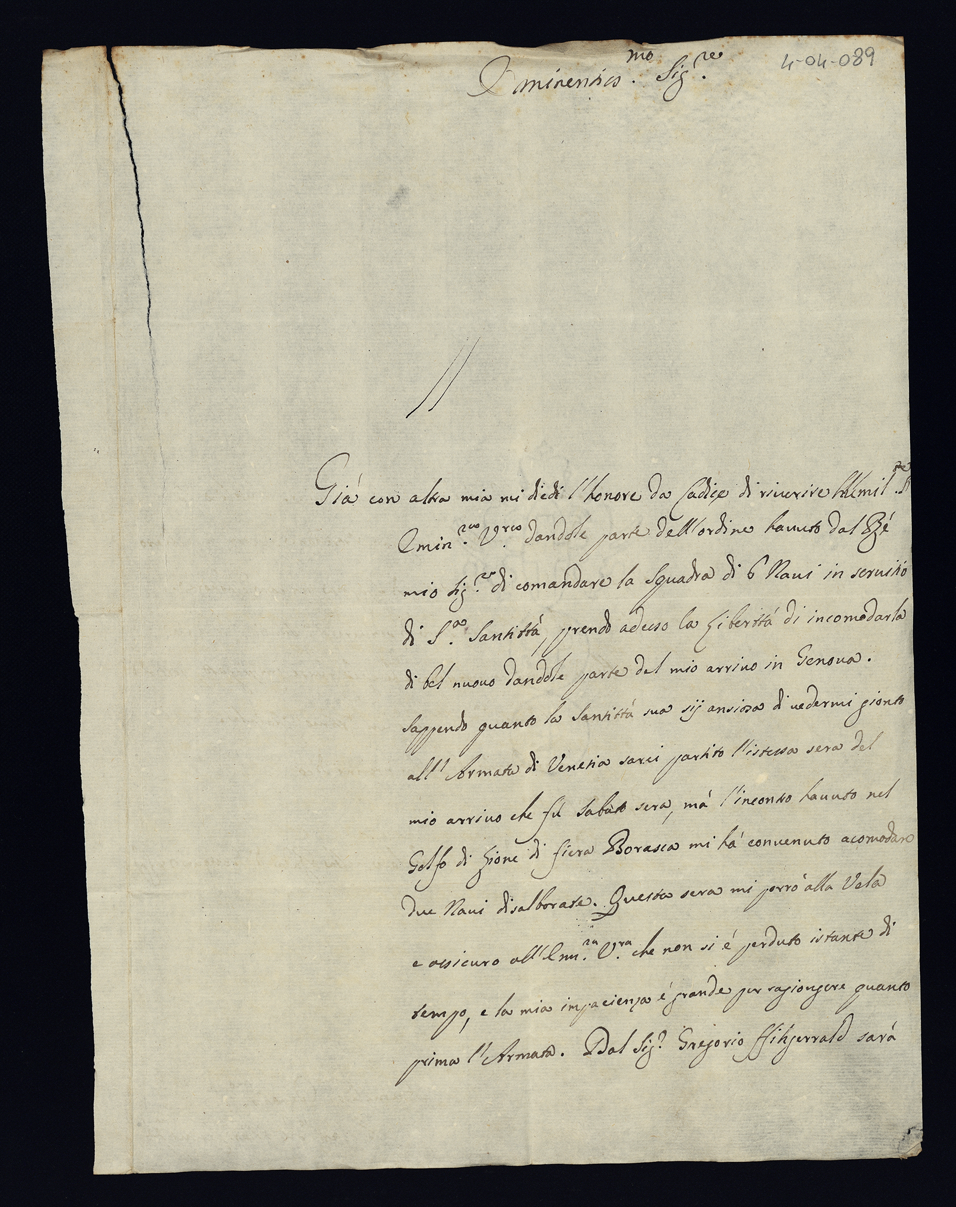 4-04-089
Eminentiss.mo Sig.re
Già con altra mia mi diedi l'honore da Cadice di riverire humil.te l'
Emin.za V.ra dandole parte dell'ordine havuto dal Ré
mio Sig.re di comandare la Squadra di 6 Navi in servitio
di S.a Santittà, prendo adesso la Libertà di incomodarla
di bel nuovo dandole parte del mio arrivo in Genova.
Sappendo quanto la Santittà sua sij ansiosa di vedermi gionto
all'Armata di Venetia sarei partito l'istessa sera del
mio arrivo che fù Sabato sera, mà l'incontro havuto nel
Golfo di Lione di fiera Borasca mi há convenuto acomodare
due Navi disalborate. Questa sera mi porrò alla Vela
e assicuro all'Em.za V.ra che non si é perduto istante di
tempo, e la mia impacienza é grande per ragiongere quanto
prima l'Armata. Dal Sig.r Gregorio ffitzgerrald sarà